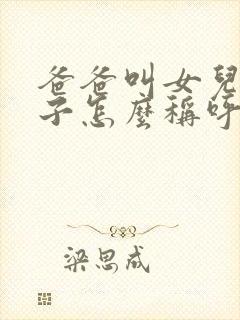 爸爸叫女兒
子怎麼稱呼
梁思成